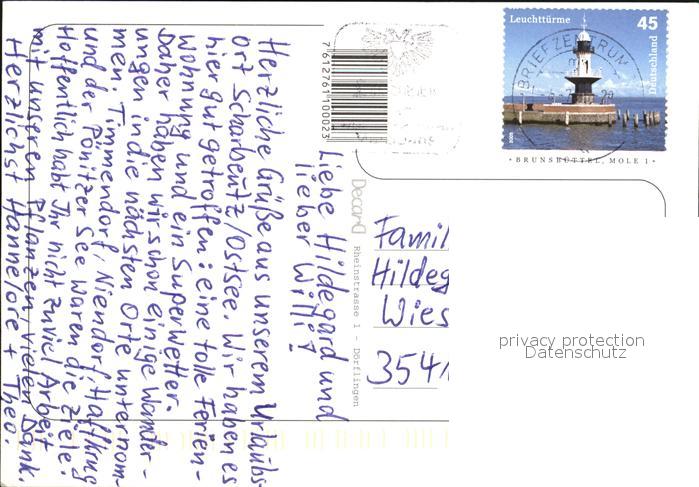 Liebe Hildegard und
lieber Willi!
Herzliche Grüße aus unserem Urlaubs-
ort Scharbeutz/Ostsee. Wir haben es
hier gut getroffen: eine tolle Ferien-
wohnung und ein Superwetter.
Daher haben wir schon einige Wander-
ungen in die nächsten Orte unternom-
men. Timmendorf, Niendorf, Haffkrug
und der Pönitzer See waren die Ziele.
Hoffentlich habt Ihr nicht zuviel Arbeit
mit unseren Pflanzen, vielen Dank.
Herzlichst Hannelore + Theo.
7612761100023
Decard Rheinstrasse 1 - Dörflingen
Leuchttürme 45
Deutschland
BRIEFZENTRUM
· BRUNSBÜTTEL, MOLE 1 ·
Famil
Hildeg
Wies
354
privacy protection
Datenschutz